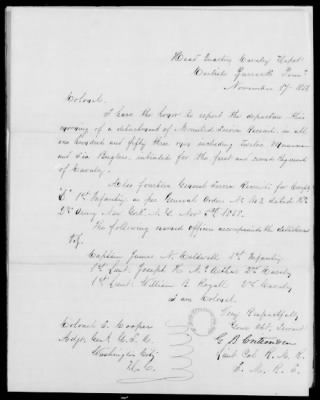 Head Quarters Cavalry Depot
Carlisle Barracks Penn
November 17th 1858
Colonel.
I have the honor to report the departure this
morning of a detachment of Mounted Service Recruits, in all
one hundred and fifty three men including Twelve
and Six Buglers, intended for the first and second Regiment
of Cavalry.
Also fourteen General Service Recruits for Compy
1st Infantry, as per General Order No
The following named officers accompanied the detachment
Viz:
Captain James N. Caldwell 1st Infantry
1st Lieut. Joseph H. McArthur 2nd Cavalry
1st Lieut. William B. Royall 2nd Cavalry
I am Colonel
Very Respectfully
Your Obt. Servant
Colonel S. Cooper
Adjt. Genl. U.S.A.
Washington City
D.C.
G B Crittenden
Lieut Col R. M. R.